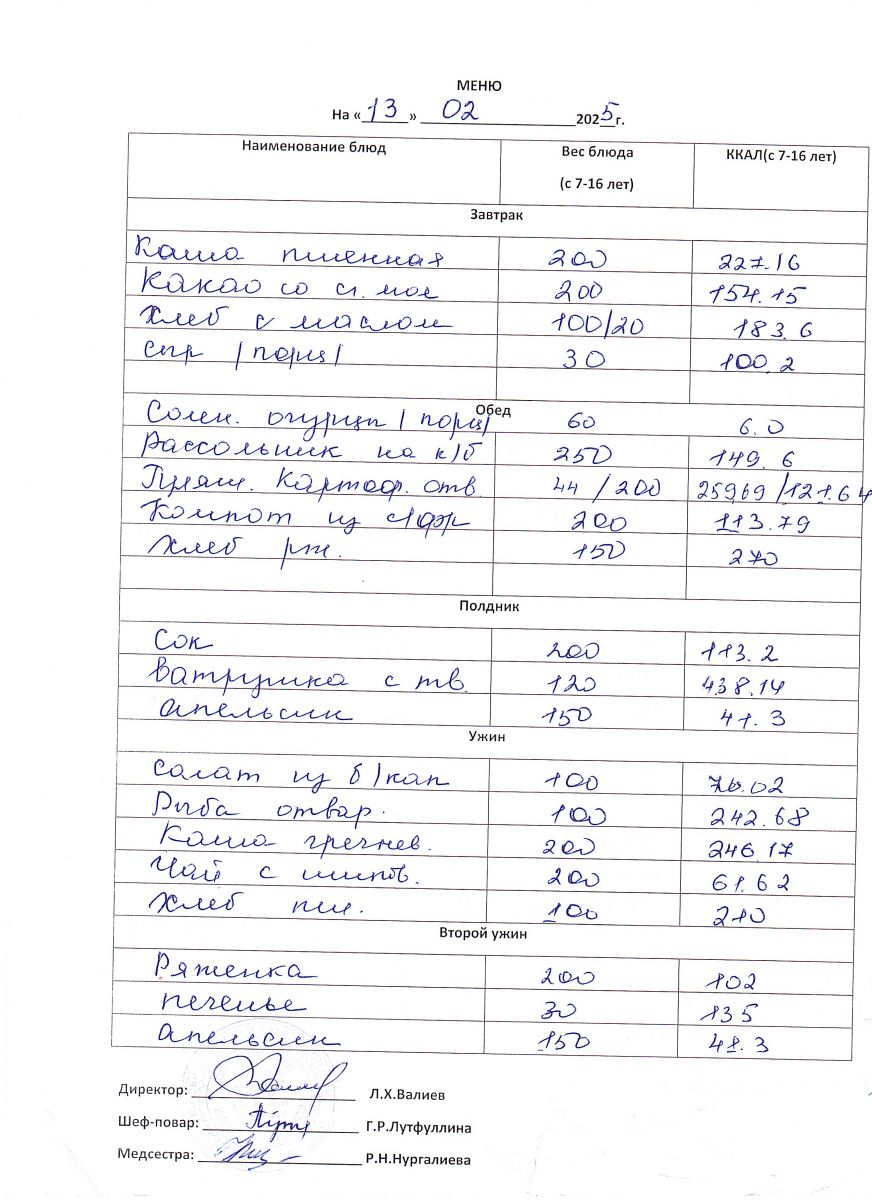 МЕНЮ
На «13» 02 2025 г.
Наименование блюд Вес блюда (с 7-16 лет) ККАЛ(с 7-16 лет)
Завтрак
Каша пшенная 200 227.16
Какао со сг. мол 200 154.15
Хлеб с маслом 100/20 183.6
сыр /порц/ 30 100.2
Обед
Солен. огурцы /порц/ 60 6.0
Рассольник на к/б 250 149.6
Картоф. отв. 44/200 259,69/121.64
Компот из с/фр 200 113.79
Хлеб рж. 150 270
Полдник
Сок 200 113.2
Ватрушка с тв. 120 438.14
апельсин 150 41.3
Ужин
салат из б/кап 100 76.02
Рыба отвар. 100 242.68
Каша гречнев. 200 246.17
Чай с шипов. 200 61.62
Хлеб пш. 100 210
Второй ужин
Ряженка 200 102
печенье 30 135
апельсин 150 41.3
Директор: Л.Х.Валиев
Шеф-повар: Г.Р.Лутфуллина
Медсестра: Р.Н.Нургалиева